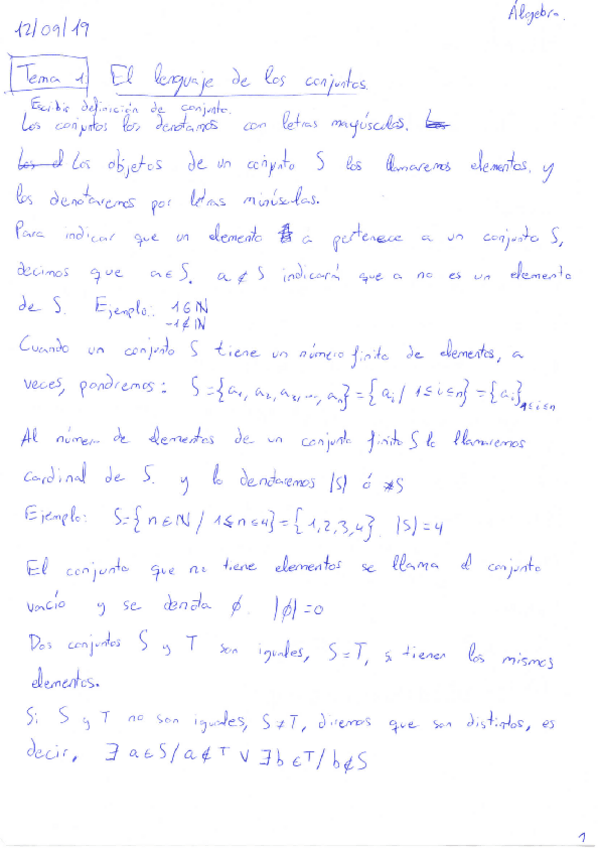 Álgebra.
12/09/19
Tema 1 El lenguaje de los conjuntos.
Escribir definición de conjunto.
Los conjuntos los denotamos con letras mayúsculas. Los
Los el Los objetos de un conjunto S los llamaremos elementos, y
los denotaremos por letras minúsculas.
Para indicar que un elemento a pertenece a un conjunto S,
decimos que a∈S. a∉S indicará que a no es un elemento
de S. Ejemplo: 1∈ℕ
-1∉ℕ
Cuando un conjunto S tiene un número finito de elementos, a
veces, pondremos: S={a₁, a₂, a₃, ..., aₙ}={aᵢ / 1≤i≤n}={aᵢ}₁≤ᵢ≤ₙ
Al número de elementos de un conjunto finito S lo llamaremos
cardinal de S. y lo denotaremos |S| ó *S
Ejemplo: S={n∈ℕ / 1≤n≤4}={1,2,3,4}. |S|=4
El conjunto que no tiene elementos se llama el conjunto
vacío y se denota ∅. |∅|=0
Dos conjuntos S y T son iguales, S=T, si tienen los mismos
elementos.
Si S y T no son iguales, S≠T, diremos que son distintos, es
decir, ∃ a∈S/a∉T ∨ ∃b∈T/b∉S
1